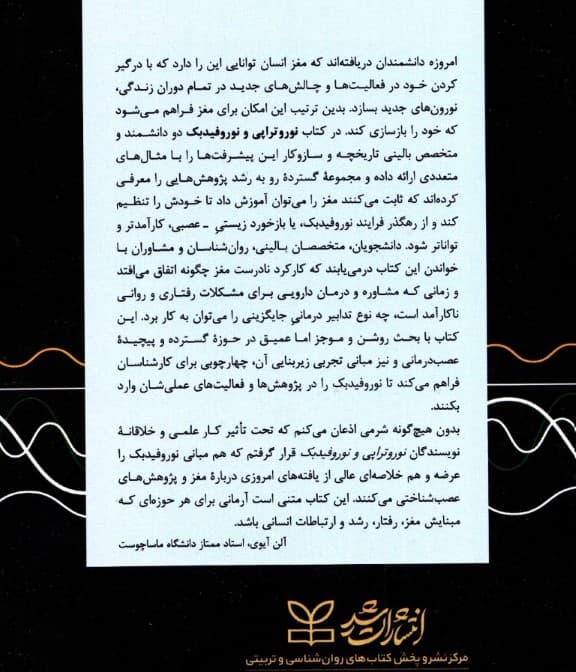 امروزه دانشمندان دریافته‌اند که مغز انسان توانایی این را دارد که با درگیر
کردن خود در فعالیت‌ها و چالش‌های جدید در تمام دوران زندگی،
نورون‌های جدید بسازد. بدین ترتیب این امکان برای مغز فراهم می‌شود
که خود را بازسازی کند. در کتاب نوروتراپی و نوروفیدبک دو دانشمند و
متخصص بالینی تاریخچه و سازوکار این پیشرفت‌ها را با مثال‌های
متعددی ارائه داده و مجموعهٔ گستردهٔ رو به رشد پژوهش‌هایی را معرفی
کرده‌اند که ثابت می‌کنند مغز را می‌توان آموزش داد تا خودش را تنظیم
کند و از رهگذر فرایند نوروفیدبک، یا بازخورد زیستیِ ـ عصبی، کارآمدتر و
تواناتر شود. دانشجویان، متخصصان بالینی، روان‌شناسان و مشاوران با
خواندن این کتاب درمی‌یابند که کارکرد نادرست مغز چگونه اتفاق می‌افتد
و زمانی که مشاوره و درمان دارویی برای مشکلات رفتاری و روانی
ناکارآمد است، چه نوع تدابیر درمانیِ جایگزینی را می‌توان به کار برد. این
کتاب با بحث روشن و موجز اما عمیق در حوزهٔ گسترده و پیچیدهٔ
عصب‌درمانی و نیز مبانی تجربی زیربنایی آن، چهارچوبی برای کارشناسان
فراهم می‌کند تا نوروفیدبک را در پژوهش‌ها و فعالیت‌های عملی‌شان وارد
بکنند.
بدون هیچ‌گونه شرمی اذعان می‌کنم که تحت تأثیر کار علمی و خلاقانهٔ
نویسندگان نوروتراپی و نوروفیدبک قرار گرفتم که هم مبانی نوروفیدبک را
عرضه و هم خلاصه‌ای عالی از یافته‌های امروزی دربارهٔ مغز و پژوهش‌های
عصب‌شناختی می‌کنند. این کتاب متنی است آرمانی برای هر حوزه‌ای که
مبنایش مغز، رفتار، رشد و ارتباطات انسانی باشد.
آلن آیوی، استاد ممتاز دانشگاه ماساچوست
انتشارات رشد
مرکز نشر و پخش کتاب‌های روان‌شناسی و تربیتی